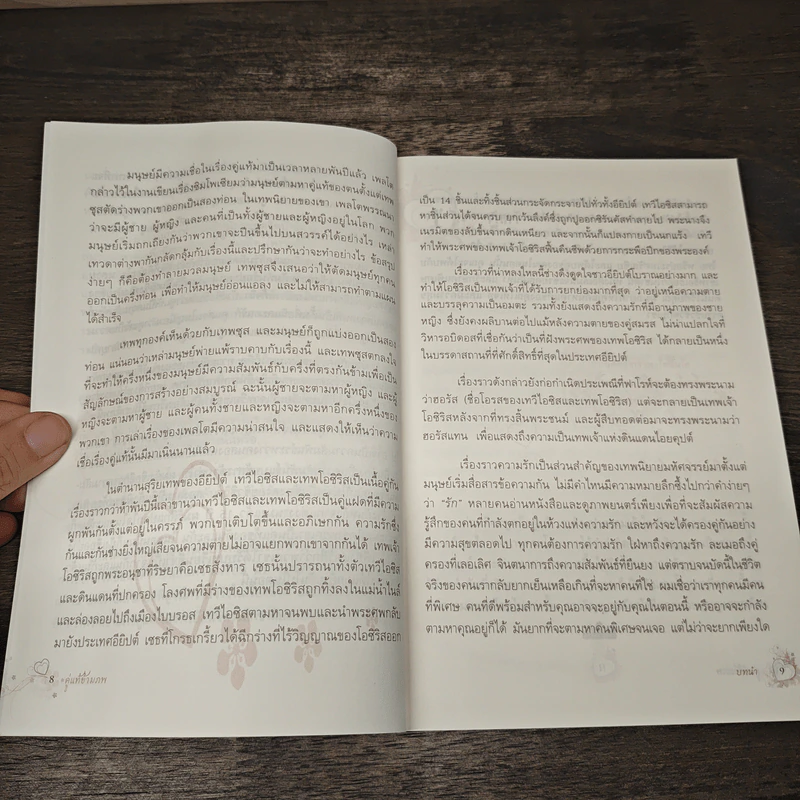 มนุษย์มีความเชื่อในเรื่องคู่แท้มาเป็นเวลาหลายพันปีแล้ว เพลโต
กล่าวไว้ในงานเขียนเรื่องซิมโพเซียมว่ามนุษย์ตามหาคู่แท้ของตนตั้งแต่เทพ
ซุสตัดร่างพวกเขาออกเป็นสองท่อน ในเทพนิยายของเขา เพลโตพรรณนา
ว่าจะมีผู้ชาย ผู้หญิง และคนที่เป็นทั้งผู้ชายและผู้หญิงอยู่ในโลก พวก
มนุษย์เริ่มถกเถียงกันว่าพวกเขาจะปีนขึ้นไปบนสวรรค์ได้อย่างไร เหล่า
เทวดาต่างพากันกลัดกลุ้มกับเรื่องนี้และปรึกษากันว่าจะทำอย่างไร ข้อสรุป
ง่ายๆ ก็คือต้องทำลายมวลมนุษย์ เทพซุสจึงเสนอว่าให้ตัดมนุษย์ทุกคน
ออกเป็นครึ่งท่อน เพื่อทำให้มนุษย์อ่อนแอลง และไม่ให้สามารถทำตามแผน
ได้สำเร็จ
เทพทุกองค์เห็นด้วยกับเทพซุส และมนุษย์ก็ถูกแบ่งออกเป็นสอง
ท่อน แน่นอนว่าเหล่ามนุษย์พ่ายแพ้ราบคาบกับเรื่องนี้ และเทพซุสตกลงใจ
ที่จะทำให้ครึ่งหนึ่งของมนุษย์มีความสัมพันธ์กับครึ่งที่ตรงกันข้ามเพื่อเป็น
สัญลักษณ์ของการสร้างอย่างสมบูรณ์ ฉะนั้นผู้ชายจะตามหาผู้หญิง และผู้
หญิงจะตามหาผู้ชาย และผู้คนทั้งชายและหญิงจะตามหาอีกครึ่งหนึ่งของ
พวกเขา การเล่าเรื่องของเพลโตมีความน่าสนใจ และแสดงให้เห็นว่าความ
เชื่อเรื่องคู่แท้นั้นมีมาเนิ่นนานแล้ว
ในตำนานสุริยเทพของอียิปต์ เทวีไอซิสและเทพโอซิริสเป็นเนื้อคู่กัน
เรื่องราวกว่าห้าพันปีนี้เล่าขานว่าเทวีไอซิสและเทพโอซิริสเป็นคู่แฝดที่มีความ
ผูกพันกันตั้งแต่อยู่ในครรภ์ พวกเขาเติบโตขึ้นและอภิเษกกัน ความรักซึ่ง
กันและกันช่างยิ่งใหญ่เสียจนความตายไม่อาจแยกพวกเขาจากกันได้ เทพเจ้า
โอซิริสถูกพระอนุชาที่ริษยาคือเซธสังหาร เซธนั้นปรารถนาทั้งตัวเทวีไอซิส
และดินแดนที่ปกครอง โลงศพที่มีร่างของเทพโอซิริสถูกทิ้งลงในแม่น้ำไนล์
และล่องลอยไปถึงเมืองไบบรอส เทวีไอซิสตามหาจนพบและนำพระศพกลับ
มายังประเทศอียิปต์ เซธที่โกรธเกรี้ยวได้ฉีกร่างที่ไร้วิญญาณของโอซิริสออก
8 คู่แท้ข้ามภพ
เป็น 14 ชิ้นและทิ้งชิ้นส่วนกระจัดกระจายไปทั่วทั้งอียิปต์ เทวีไอซิสสามารถ
หาชิ้นส่วนได้จนครบ ยกเว้นลึงค์ซึ่งถูกปูออกซิรินคัสทำลายไป พระนางจึง
เนรมิตของลับขึ้นจากดินเหนียว และจากนั้นก็แปลงกายเป็นนกแร้ง เทวี
ทำให้พระศพของเทพเจ้าโอซิริสฟื้นคืนชีพด้วยการกระพือปีกของพระองค์
เรื่องราวที่น่าหลงใหลนี้ช่างดึงดูดใจชาวอียิปต์โบราณอย่างมาก และ
ทำให้โอซิริสเป็นเทพเจ้าที่ได้รับการยกย่องมากที่สุด ว่าอยู่เหนือความตาย
และบรรลุความเป็นอมตะ รวมทั้งยังแสดงถึงความรักที่มีอานุภาพของชาย
หญิง ซึ่งยังคงผลิบานต่อไปแม้หลังความตายของคู่สมรส ไม่น่าแปลกใจที่
วิหารอบิดอสที่เชื่อกันว่าเป็นที่ฝังพระศพของเทพโอซิริส ได้กลายเป็นหนึ่ง
ในบรรดาสถานที่ที่ศักดิ์สิทธิ์ที่สุดในประเทศอียิปต์
เรื่องราวดังกล่าวยังก่อกำเนิดประเพณีที่ฟาโรห์จะต้องทรงพระนาม
ว่าฮอรัส (ชื่อโอรสของเทวีไอซิสและเทพโอซิริส) แต่จะกลายเป็นเทพเจ้า
โอซิริสหลังจากที่ทรงสิ้นพระชนม์ และผู้สืบทอดต่อมาจะทรงพระนามว่า
ฮอรัสแทน เพื่อแสดงถึงความเป็นเทพเจ้าแห่งดินแดนไอยคุปต์
เรื่องราวความรักเป็นส่วนสำคัญของเทพนิยายมหัศจรรย์มาตั้งแต่
มนุษย์เริ่มสื่อสารข้อความกัน ไม่มีคำไหนมีความหมายลึกซึ้งไปกว่าคำง่ายๆ
ว่า “รัก” หลายคนอ่านหนังสือและดูภาพยนตร์เพียงเพื่อที่จะสัมผัสความ
รู้สึกของคนที่กำลังตกอยู่ในห้วงแห่งความรัก และหวังจะได้ครองคู่กันอย่าง
มีความสุขตลอดไป ทุกคนต้องการความรัก ใฝ่หาถึงความรัก ละเมอถึงคู่
ครองที่เลอเลิศ จินตนาการถึงความสัมพันธ์ที่ยืนยง แต่ตราบจนบัดนี้ในชีวิต
จริงของคนเรากลับยากเย็นเหลือเกินที่จะหาคนที่ใช่ ผมเชื่อว่าเราทุกคนมีคน
ที่พิเศษ คนที่ดีพร้อมสำหรับคุณอาจจะอยู่กับคุณในตอนนี้ หรืออาจจะกำลัง
ตามหาคุณอยู่ก็ได้ มันยากที่จะตามหาคนพิเศษจนเจอ แต่ไม่ว่าจะยากเพียงใด
บทนำ 9